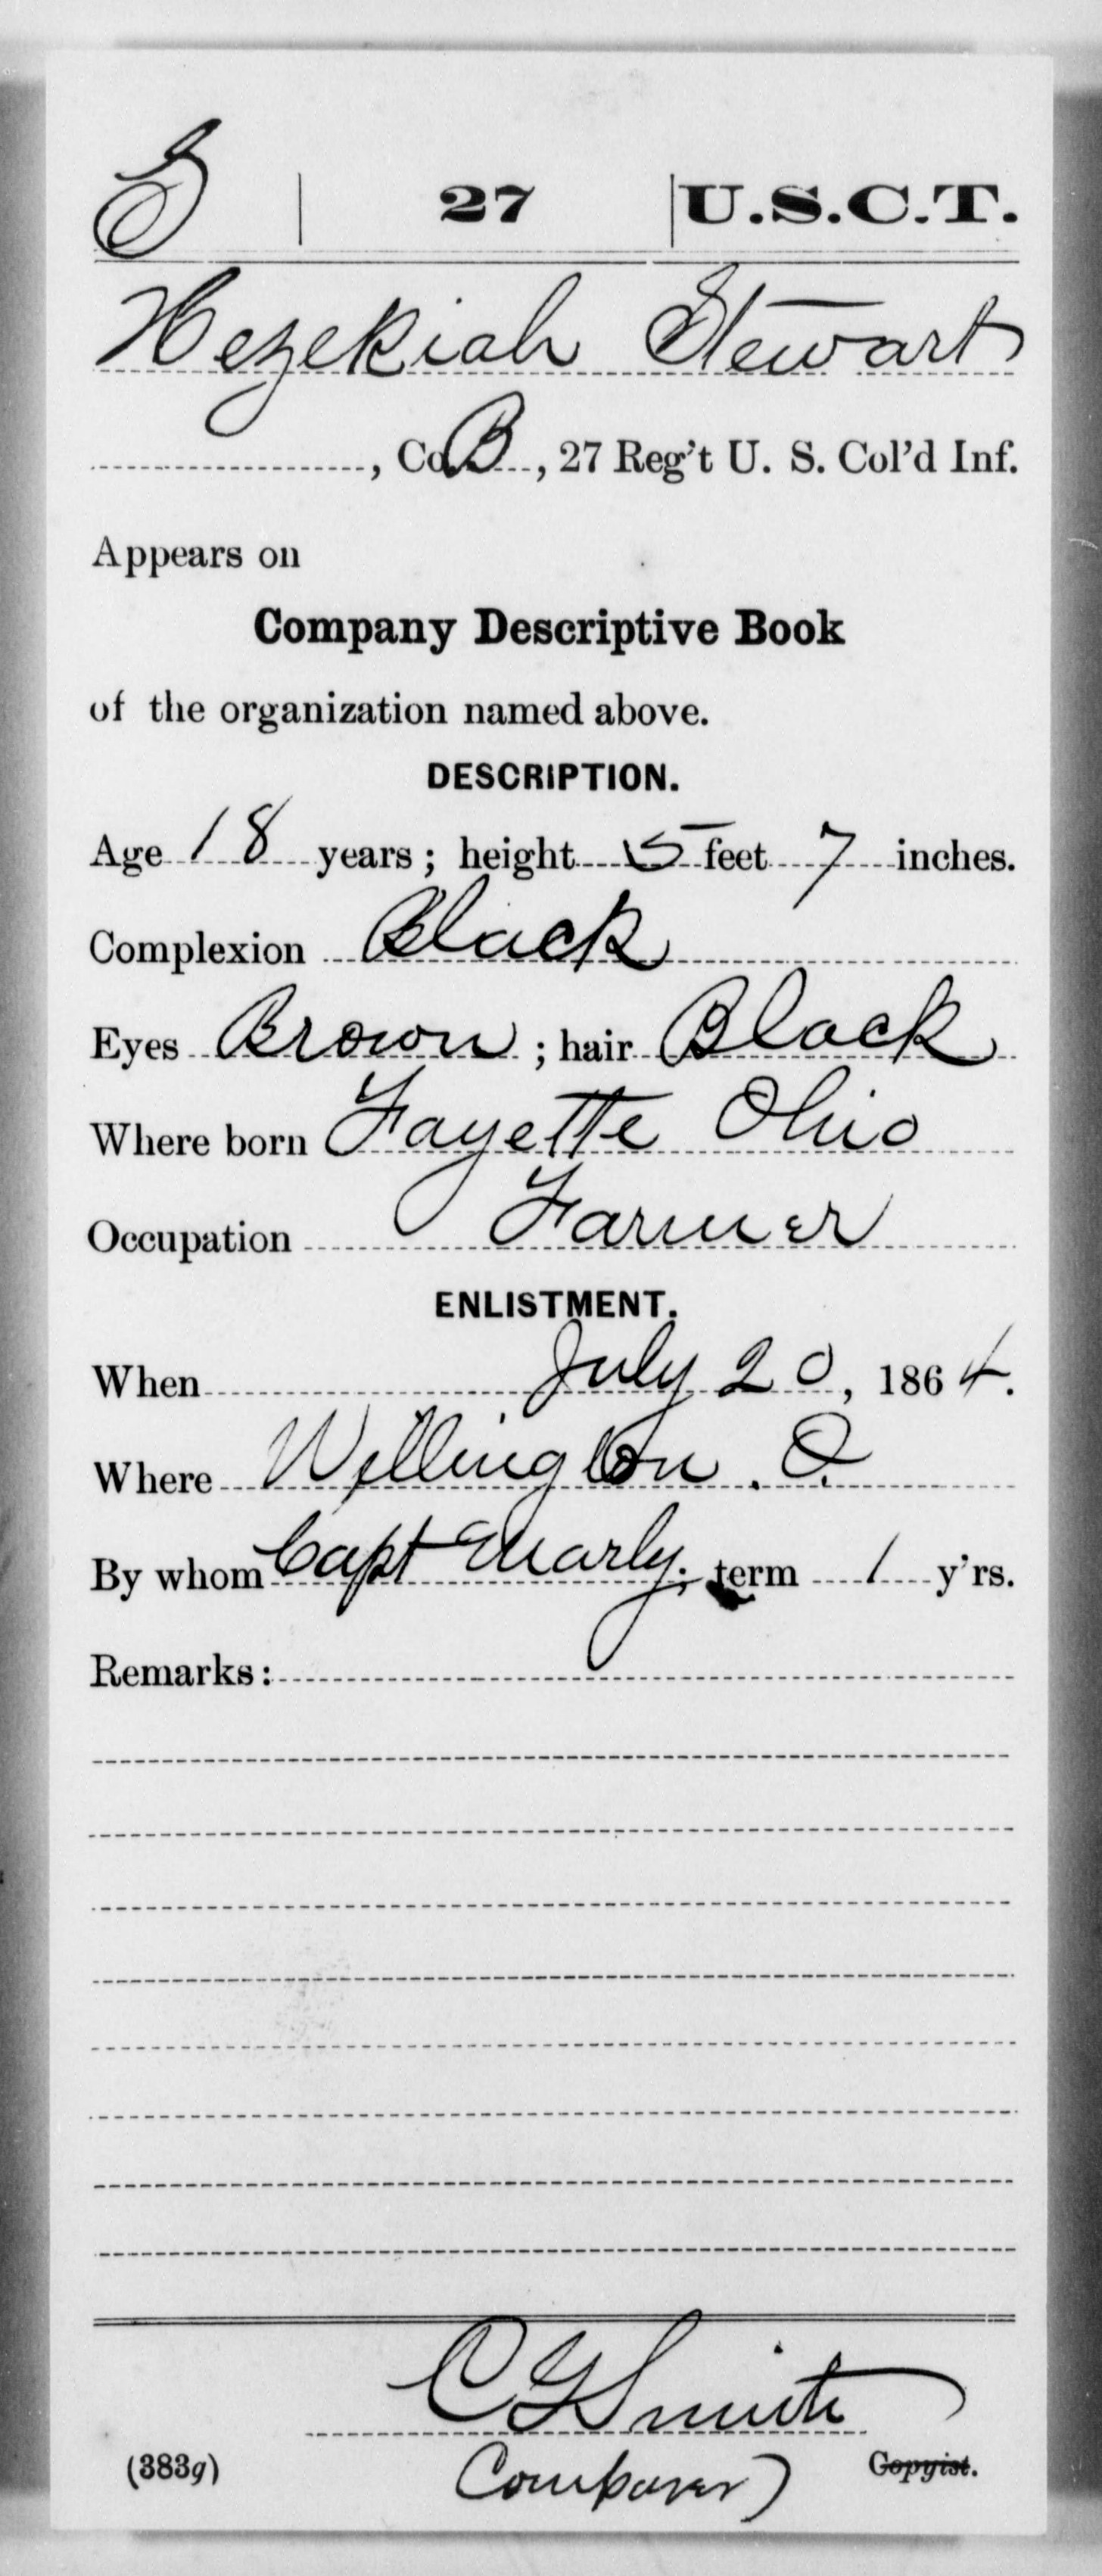 S | 27 | U.S.C.T.
Hezekiah Stewart
, Co. B, 27 Reg't U. S. Col'd Inf.
Appears on
Company Descriptive Book
of the organization named above.
DESCRIPTION.
Age 18 years; height 5 feet 7 inches.
Complexion Black
Eyes Brown; hair Black
Where born Fayette Ohio
Occupation Farmer
ENLISTMENT.
When July 20, 1864.
Where Wellington. O.
By whom Capt; term 1 y'rs.
Remarks:
C G Smith
(383g) Comparer Copyist.